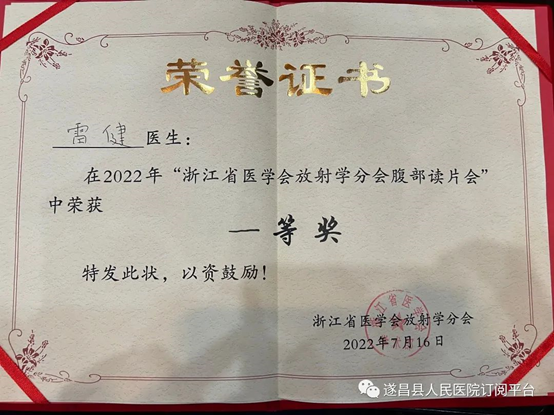 荣誉证书
雷健 医生：
在2022年“浙江省医学会放射学分会腹部读片会”
中荣获
一等奖
特发此状，以资鼓励！
浙江省医学会放射学分会
2022年7月16日
遂昌县人民医院订阅平台